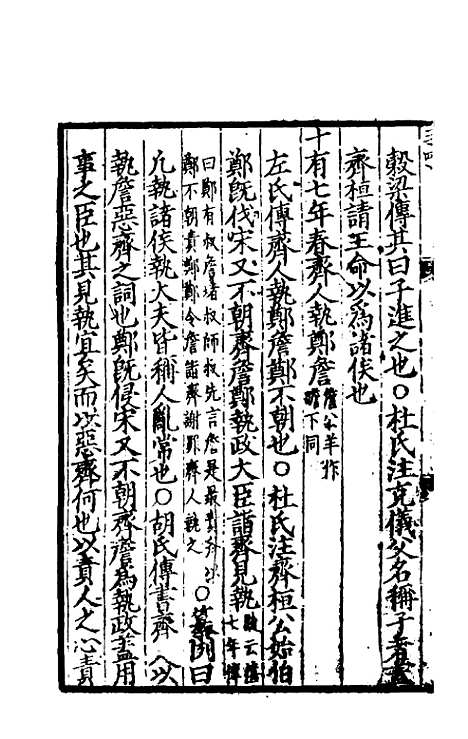 穀梁傳其曰子進之也○杜氏注克儀父名稱子者蓋
齊桓請王命以為諸侯也
十有七年春齊人執鄭詹詹公羊作瞻下同
左氏傳齊人執鄭詹鄭不朝也○杜氏注齊桓公始伯
鄭既伐宋又不朝齊詹鄭執政大臣詣齊見執
七年傳
曰鄭有叔詹堵叔師叔先言詹是最貴
鄭不朝貴鄭鄭令詹詣齊謝罪齊人執之
○纂例曰
凡執諸侯執大夫皆稱人亂常也○胡氏傳書齊人以
執詹惡齊之詞也鄭既侵宋又不朝齊詹為執政蓋用
事之臣也其見執宜矣而以惡齊何也以責人之心責